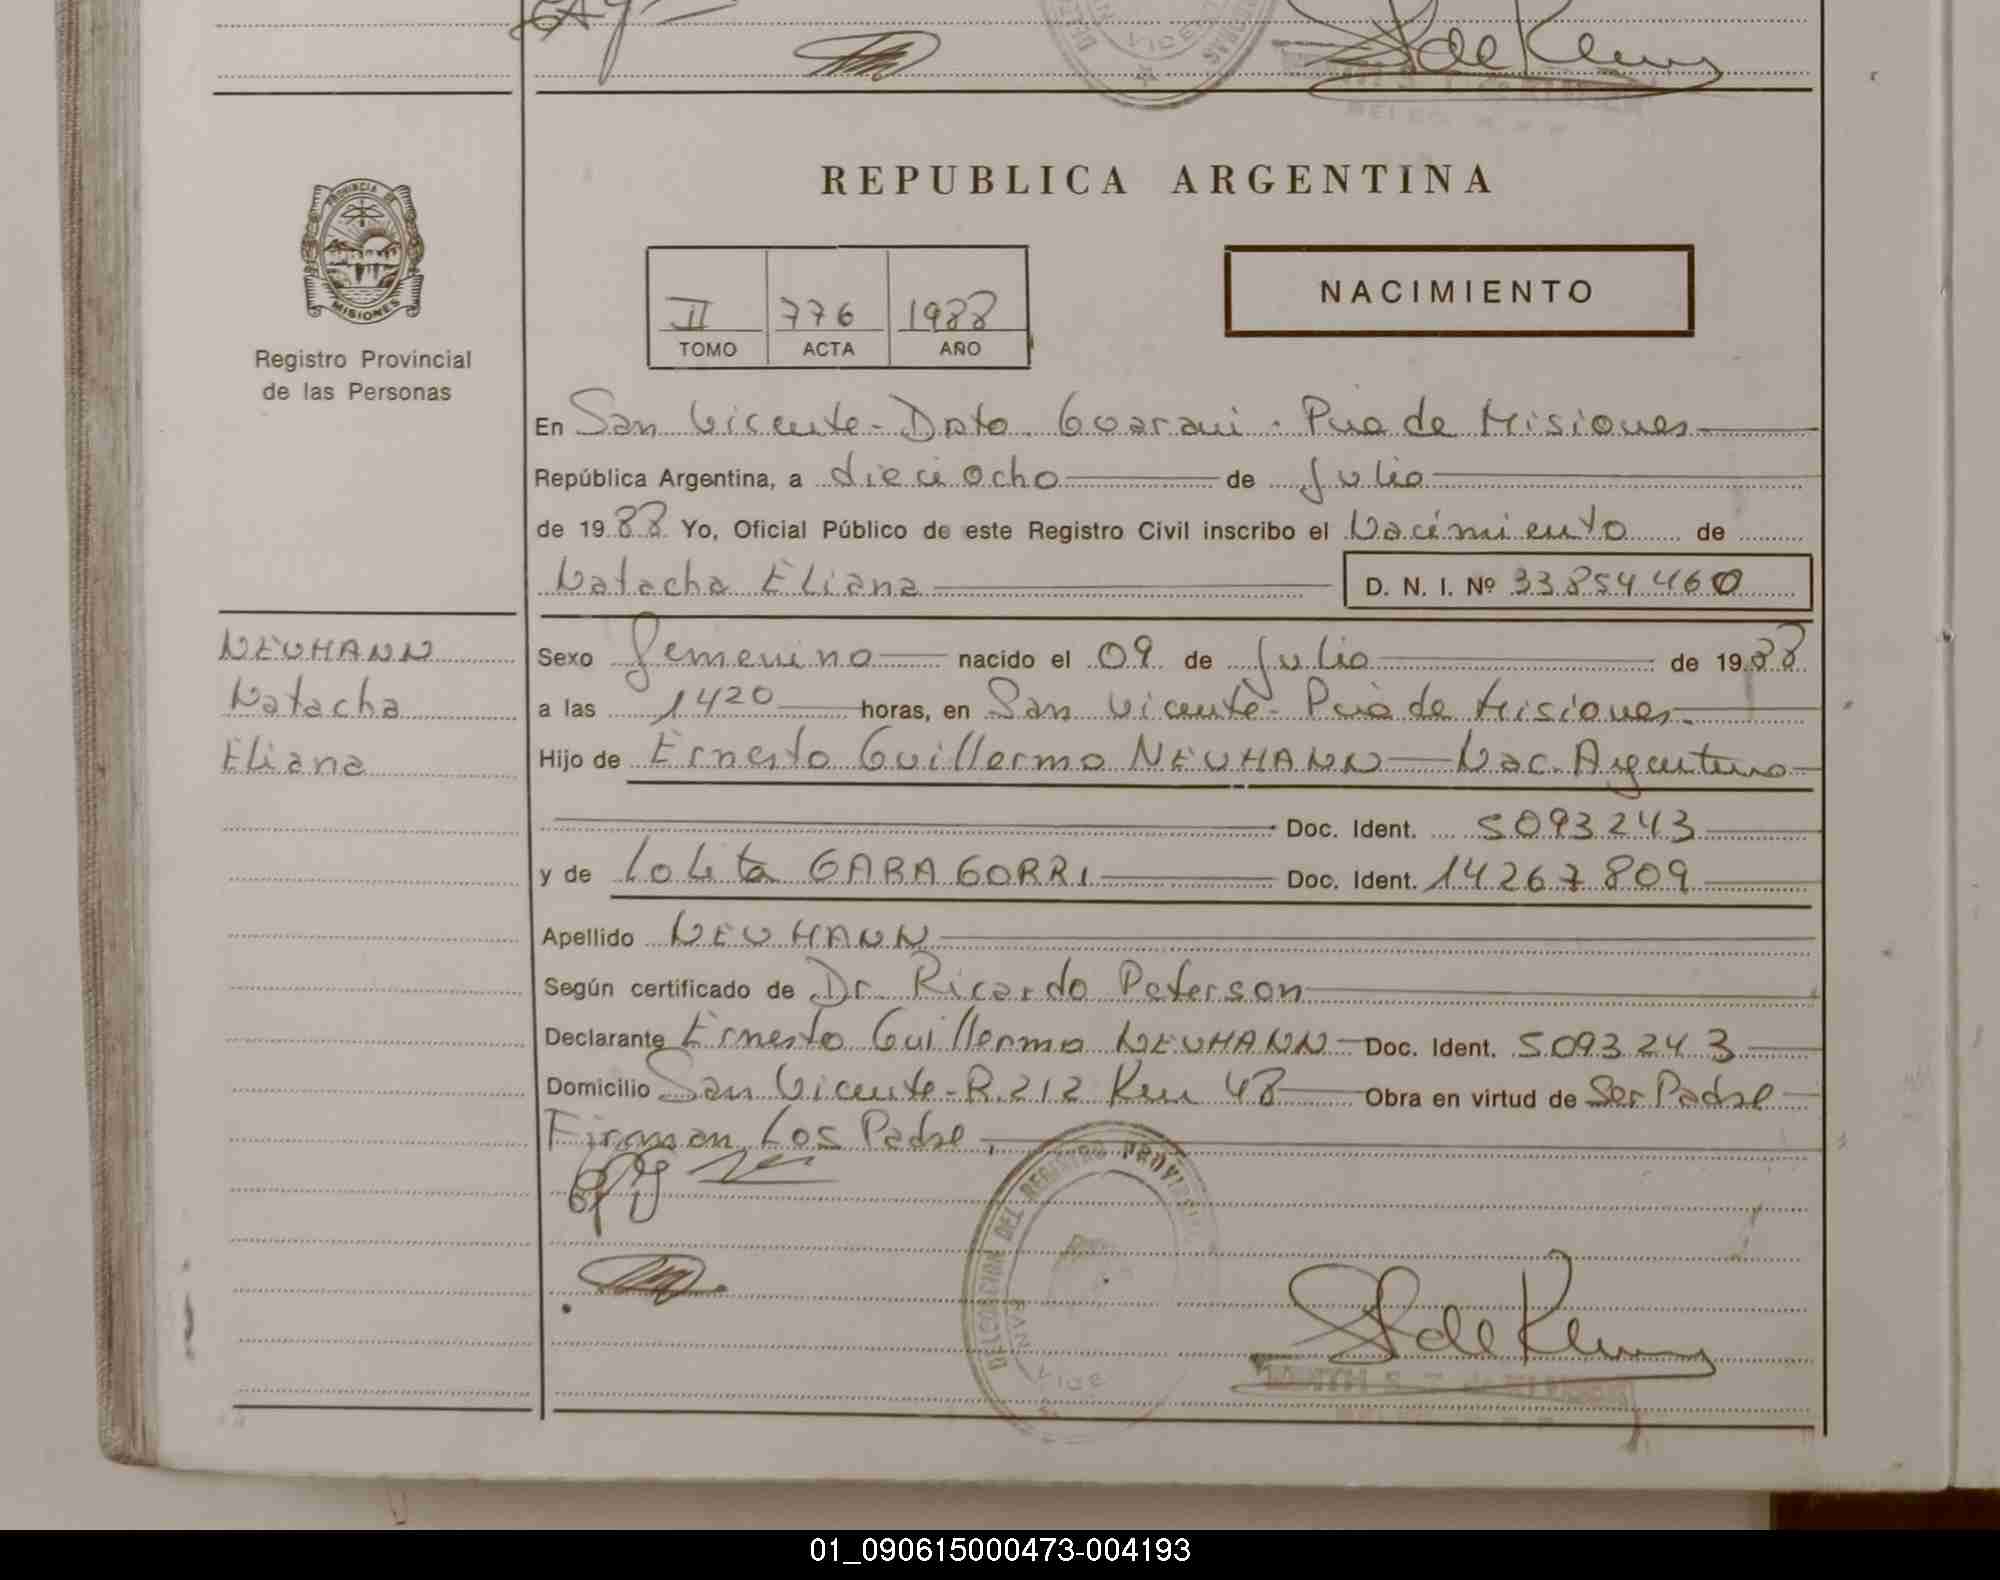 REPUBLICA ARGENTINA
PROVINCIA DE
MISIONES
Registro Provincial
de las Personas
II 776 1988
TOMO ACTA AÑO
NACIMIENTO
En San Vicente - Dpto Guarani - Pcia de Misiones
República Argentina, a dieciocho de Julio
de 1988 Yo, Oficial Público de este Registro Civil inscribo el Nacimiento de
Natacha Eliana D. N. I. Nº 33854460
NEUMANN
Natacha
Eliana
Sexo femenino nacido el 09 de Julio de 1988
a las 1420 horas, en San Vicente - Pcia de Misiones.
Hijo de Ernesto Guillermo NEUMANN Nac. Argentino
Doc. Ident. 5093243
y de Lolita GARAGORRI Doc. Ident. 14267809
Apellido NEUMANN
Según certificado de Dr. Ricardo Peterson
Declarante Ernesto Guillermo NEUMANN Doc. Ident. 5093243
Domicilio San Vicente - R. 212 Km 48 Obra en virtud de Ser Padre
Firman Los Padre.
DELEGACION DEL REGISTRO PROVINCIAL
SAN VICE
01_090615000473-004193